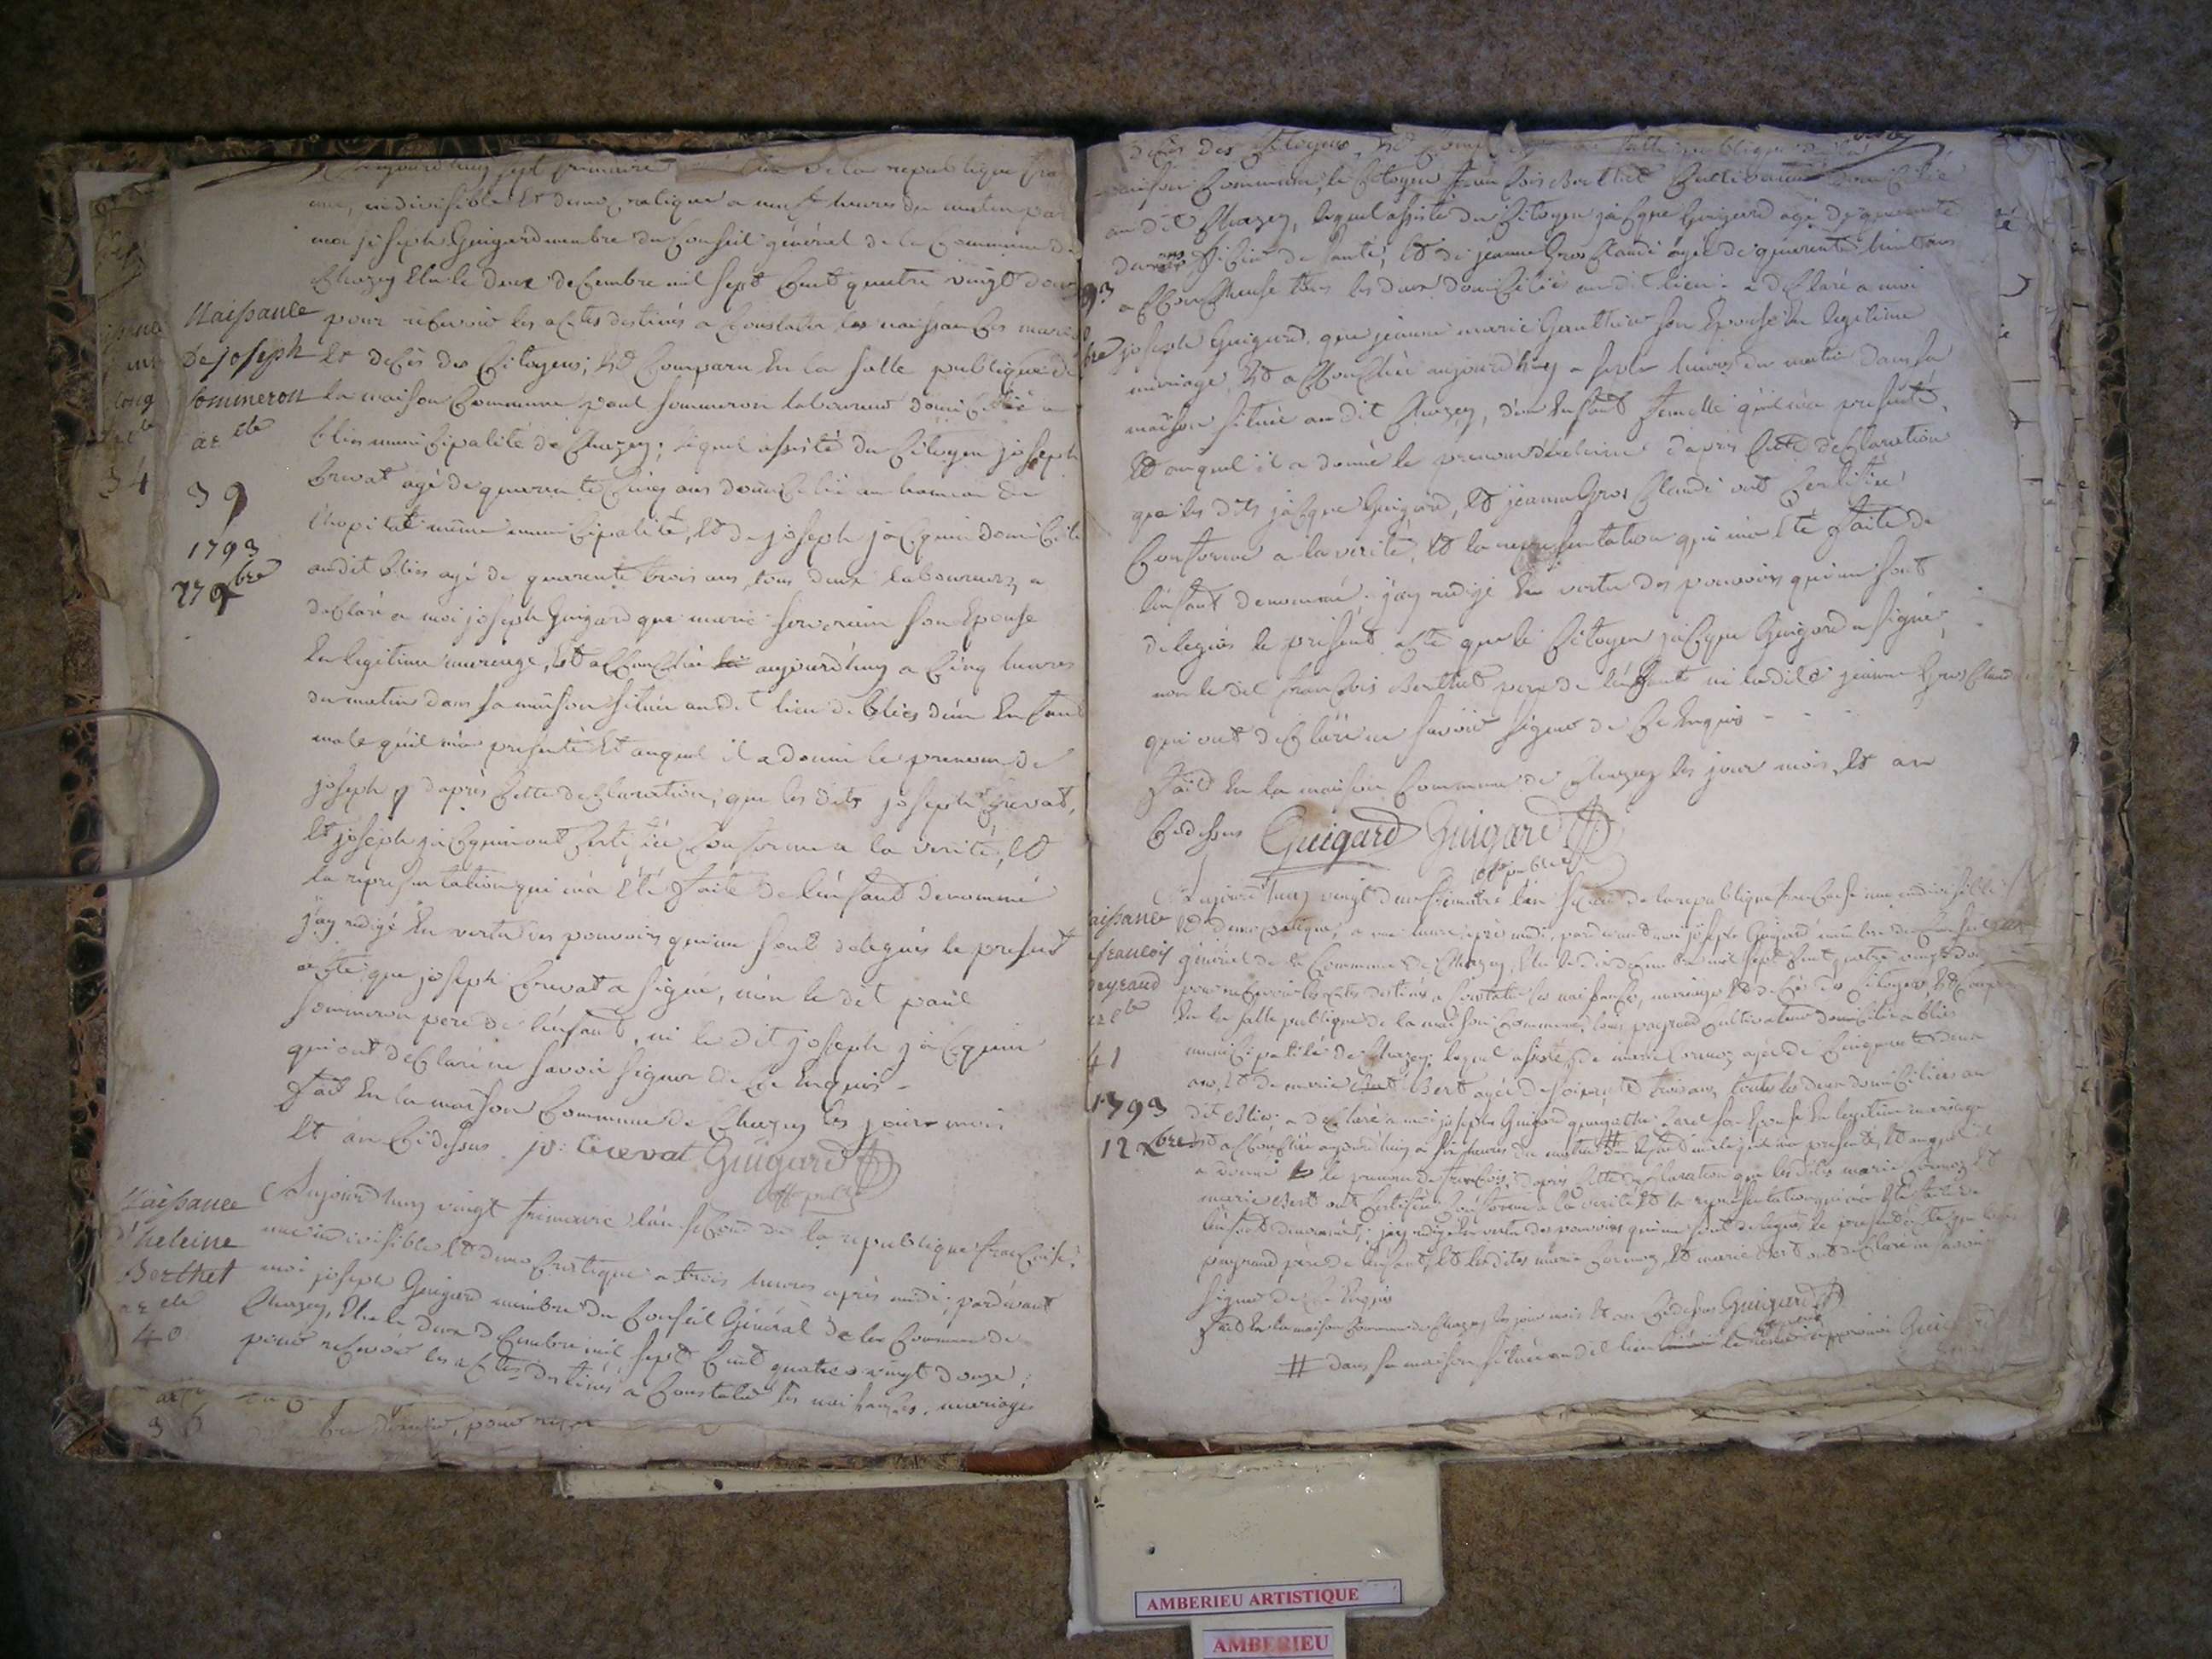 aujourd'huy sept frimaire l'an de la republique
une, indivisible Et democratique a neuf heures du matin
moi joseph Guigard membre du Conseil général de la Commune de
Chazey Elu le deux decembre mil sept Cent quatre vingt douze
pour recevoir les actes destinés a Constater les naissances mariages
Et deces des Citoyens, Est Comparu En la salle publique de
la maison Commune paul sommeron laboureur domicilié a
blies municipalité de Chazey; lequel assisté du Citoyen joseph
Crevat agé de quarante Cinq ans domicilié au hameau de
l'hopital même municipalité, Et de joseph jacquin domicilié
audit blies agé de quarante trois ans, tous deux laboureurs, a
declaré a moi joseph Guigard que marie son Epouse
En legitime mariage, Est accouchée aujourd'huy a Cinq heures
du matin dans sa maison située audit lieu de blies d'un Enfant
male qu'il m'a presenté Et auquel il a donné le prenom de
joseph d'après Cette declaration, que les dits joseph Crevat,
Et joseph jacquin ont Certifiée Conforme a la verité, Et
la representation qui m'a Été faite de l'enfant denommé
j'ay redigé En vertu des pouvoirs qui me sont delegués le present
acte que joseph Crevat a signé, non le dit paul
sommeron pere de l'enfant, ni le dit joseph jacquin
qui ont declaré ne savoir signer de Ce Enquis -
Fait En la maison Commune de Chazey les jour mois
Et an Cidessus. Crevat Guigard
off. public
Naissance
de joseph
sommeron
39
1793
27 9bre
Aujourd'huy vingt frimaire l'an second de la republique francaise,
une indivisible Et democratique a trois heures après midi; pardevant
moi joseph Guigard membre du Conseil Général de la Commune de
Chazey, Elu le deux decembre mil sept Cent quatre vingt douze;
pour recevoir les actes destinés a Constater les naissances, mariages
Naissance
d'heleine
Berthet
40
34
deces des Citoyens, Est Comparu en la salle publique de la
maison Commune, le Citoyen francois Berthet Cultivateur domicilié
au dit Chazey, lequel assisté du Citoyen jacque Guigard agé de quarante
deux ans officier de santé, Et de jeanne Gros Claude agée de quarante huit ans
accoucheuse tous les deux domiciliés audit lieu. a declaré a moi
joseph Guigard, que jeanne marie Gauthier son Epouse En legitime
mariage, Est accouchée aujourd'huy a sept heures du matin dans sa
maison située au dit Chazey, d'un Enfant femelle qu'il m'a presenté,
Et auquel il a donné le prenom d'heleine d'après Cette declaration
que les dits jacque Guigard, Et jeanne Gros Claude ont Certifiée
Conforme a la verité, Et la representation qui m'a Été faite de
l'enfant denommé. j'ay redigé En vertu des pouvoirs qui me sont
delegués le present acte que le Citoyen jacque Guigard a signé,
non le dit francois Berthet pere de l'enfant ni ladite jeanne Gros Claude
qui ont declaré ne savoir signer de Ce Enquis -
Fait En la maison Commune de Chazey les jour mois, Et an
Cidessus Guigard Guigard
off. public
93
bre
aujourd'huy vingt deux frimaire l'an second de la republique francaise une indivisible
Et democratique, a une heure après midi, pardevant moi joseph Guigard membre du Conseil
général de la Commune de Chazey, Elu le deux decembre mil sept Cent quatre vingt douze
pour recevoir les actes destinés a Constater les naissances, mariages Et deces des Citoyens Est Comparu
En la salle publique de la maison Commune, louis peyraud Cultivateur domicilié a blies
municipalité de Chazey; lequel assisté de marie Cormoz agée de Cinquante deux
ans, Et de marie Bert agée de soixante trois ans, toutes les deux domiciliées au
dit blies. a declaré a moi joseph Guigard que son Epouse En legitime mariage
Est accouchée aujourd'huy a six heures du matin # d'un Enfant male qu'il m'a presenté, Et auquel il
a donné le prenom de francois; d'après Cette declaration que les dites marie Cormoz Et
marie Bert ont Certifiée Conforme a la verité Et la representation qui m'a Été faite de
l'enfant denommé; j'ay redigé En vertu des pouvoirs qui me sont delegués, le present acte que louis
peyraud père de l'enfant, Et les dites marie Cormoz, Et marie Bert ont declaré ne savoir
signer de Ce Enquis
Fait En la maison Commune de Chazey les jour mois Et an Cidessus Guigard
# dans sa maison située audit lieu
aissance
francois
peyraud
41
1793
12 Xbre
AMBERIEU ARTISTIQUE
AMBERIEU